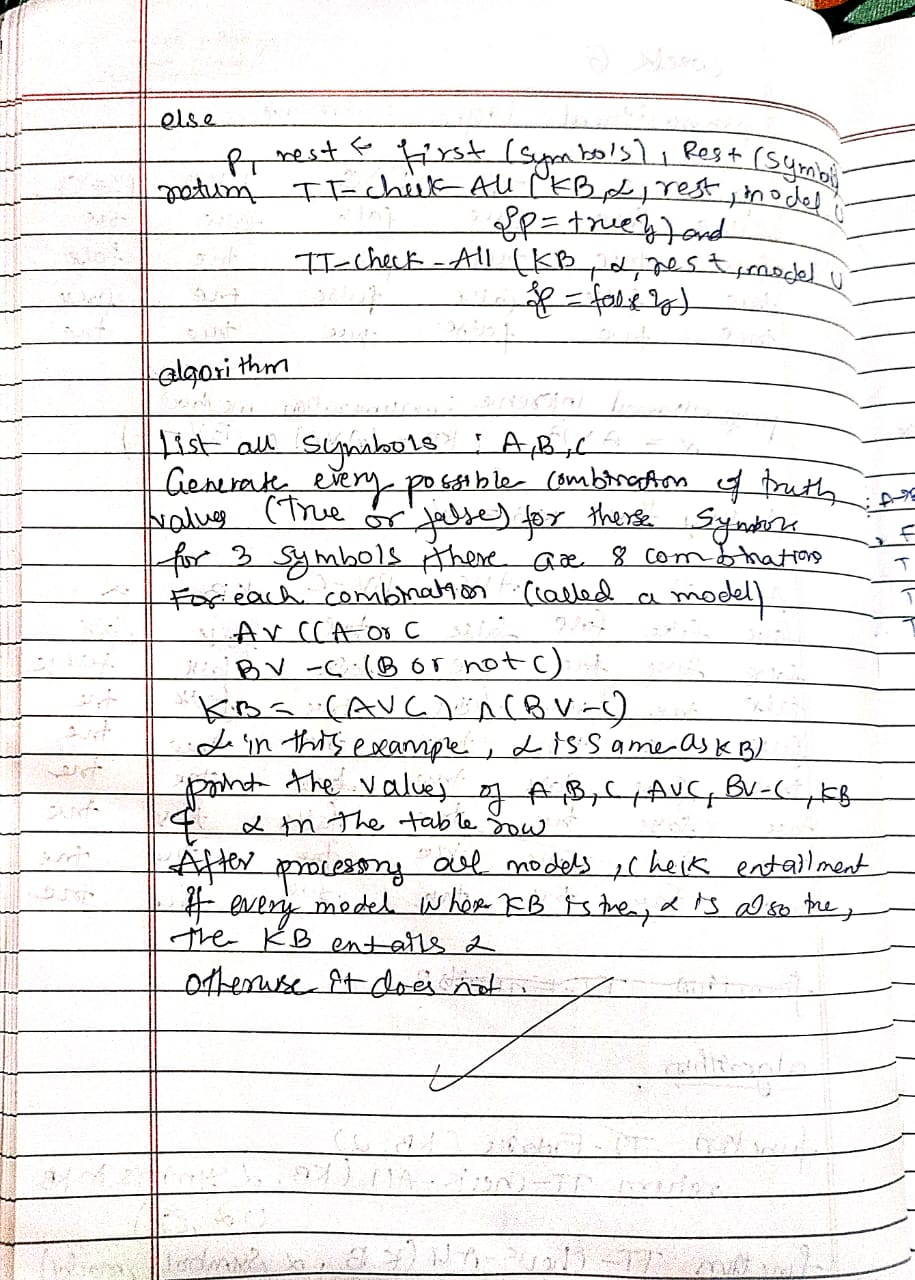 else
P, rest ← first (symbols), Rest (symbo
return TT-check-All (KB, α, rest, model ∪
{p = true}) and
TT-check-All (KB, α, rest, model ∪
{p = false})
algorithm
List all symbols : A, B, C
Generate every possible combination of truth
values (True or false) for these Symbols
for 3 symbols there are 8 combinations
For each combination (called a model)
A v C (A or C
B V -C (B or not C)
KB = (AVC) ∧ (B V -C)
α in this example, α is same as KB)
print the values of A, B, C, AVC, BV-C, KB
& α in the table row
After processing all models, check entailment
If every model where KB is true, α is also true,
the KB entails α
otherwise it does not.